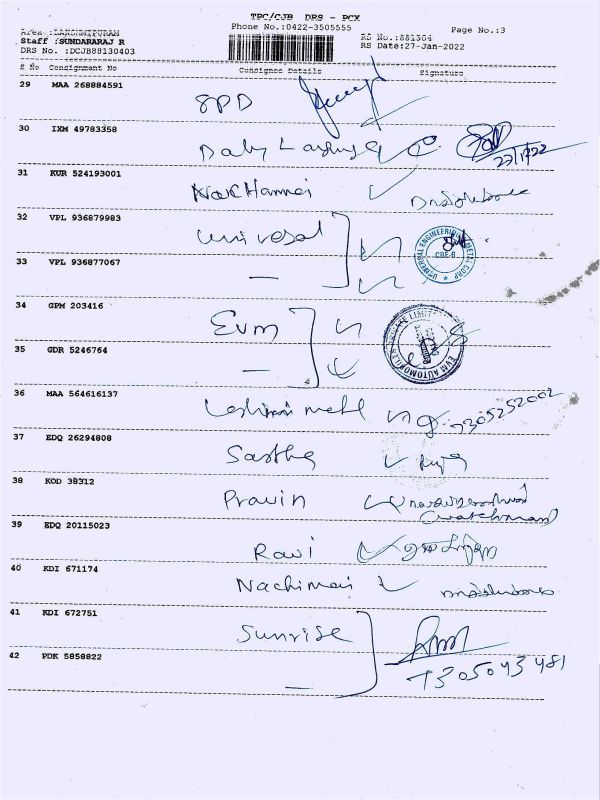 TPC/CJB DRS - PCX
Area :LAKSHMIPURAM Phone No.:0422-3505555 Page No.:3
Staff :SUNDARARAJ R RS No.:881304
DRS No. :DCJB88130403 RS Date:27-Jan-2022
S No Consignment No Consignee Details Signature
29 MAA 268884591
SPD
30 IXM 49783358
27/1/22
31 KUR 524193001
32 VPL 936879983
Universal
UNIVERSAL ENGINEERING METAL CORP CBE-6
33 VPL 936877067
34 GPM 203416
Evm
EVM AUTOMOBILES PRIVATE LIMITED
35 GDR 5246764
36 MAA 564616137
7305252002
37 EDQ 26294808
Sastha
38 KOD 38312
Pravin
watchman
39 EDQ 20115023
Ravi
40 KDI 671174
Nachimai
41 KDI 672751
Sunrise
42 PDK 5858822
7305043481